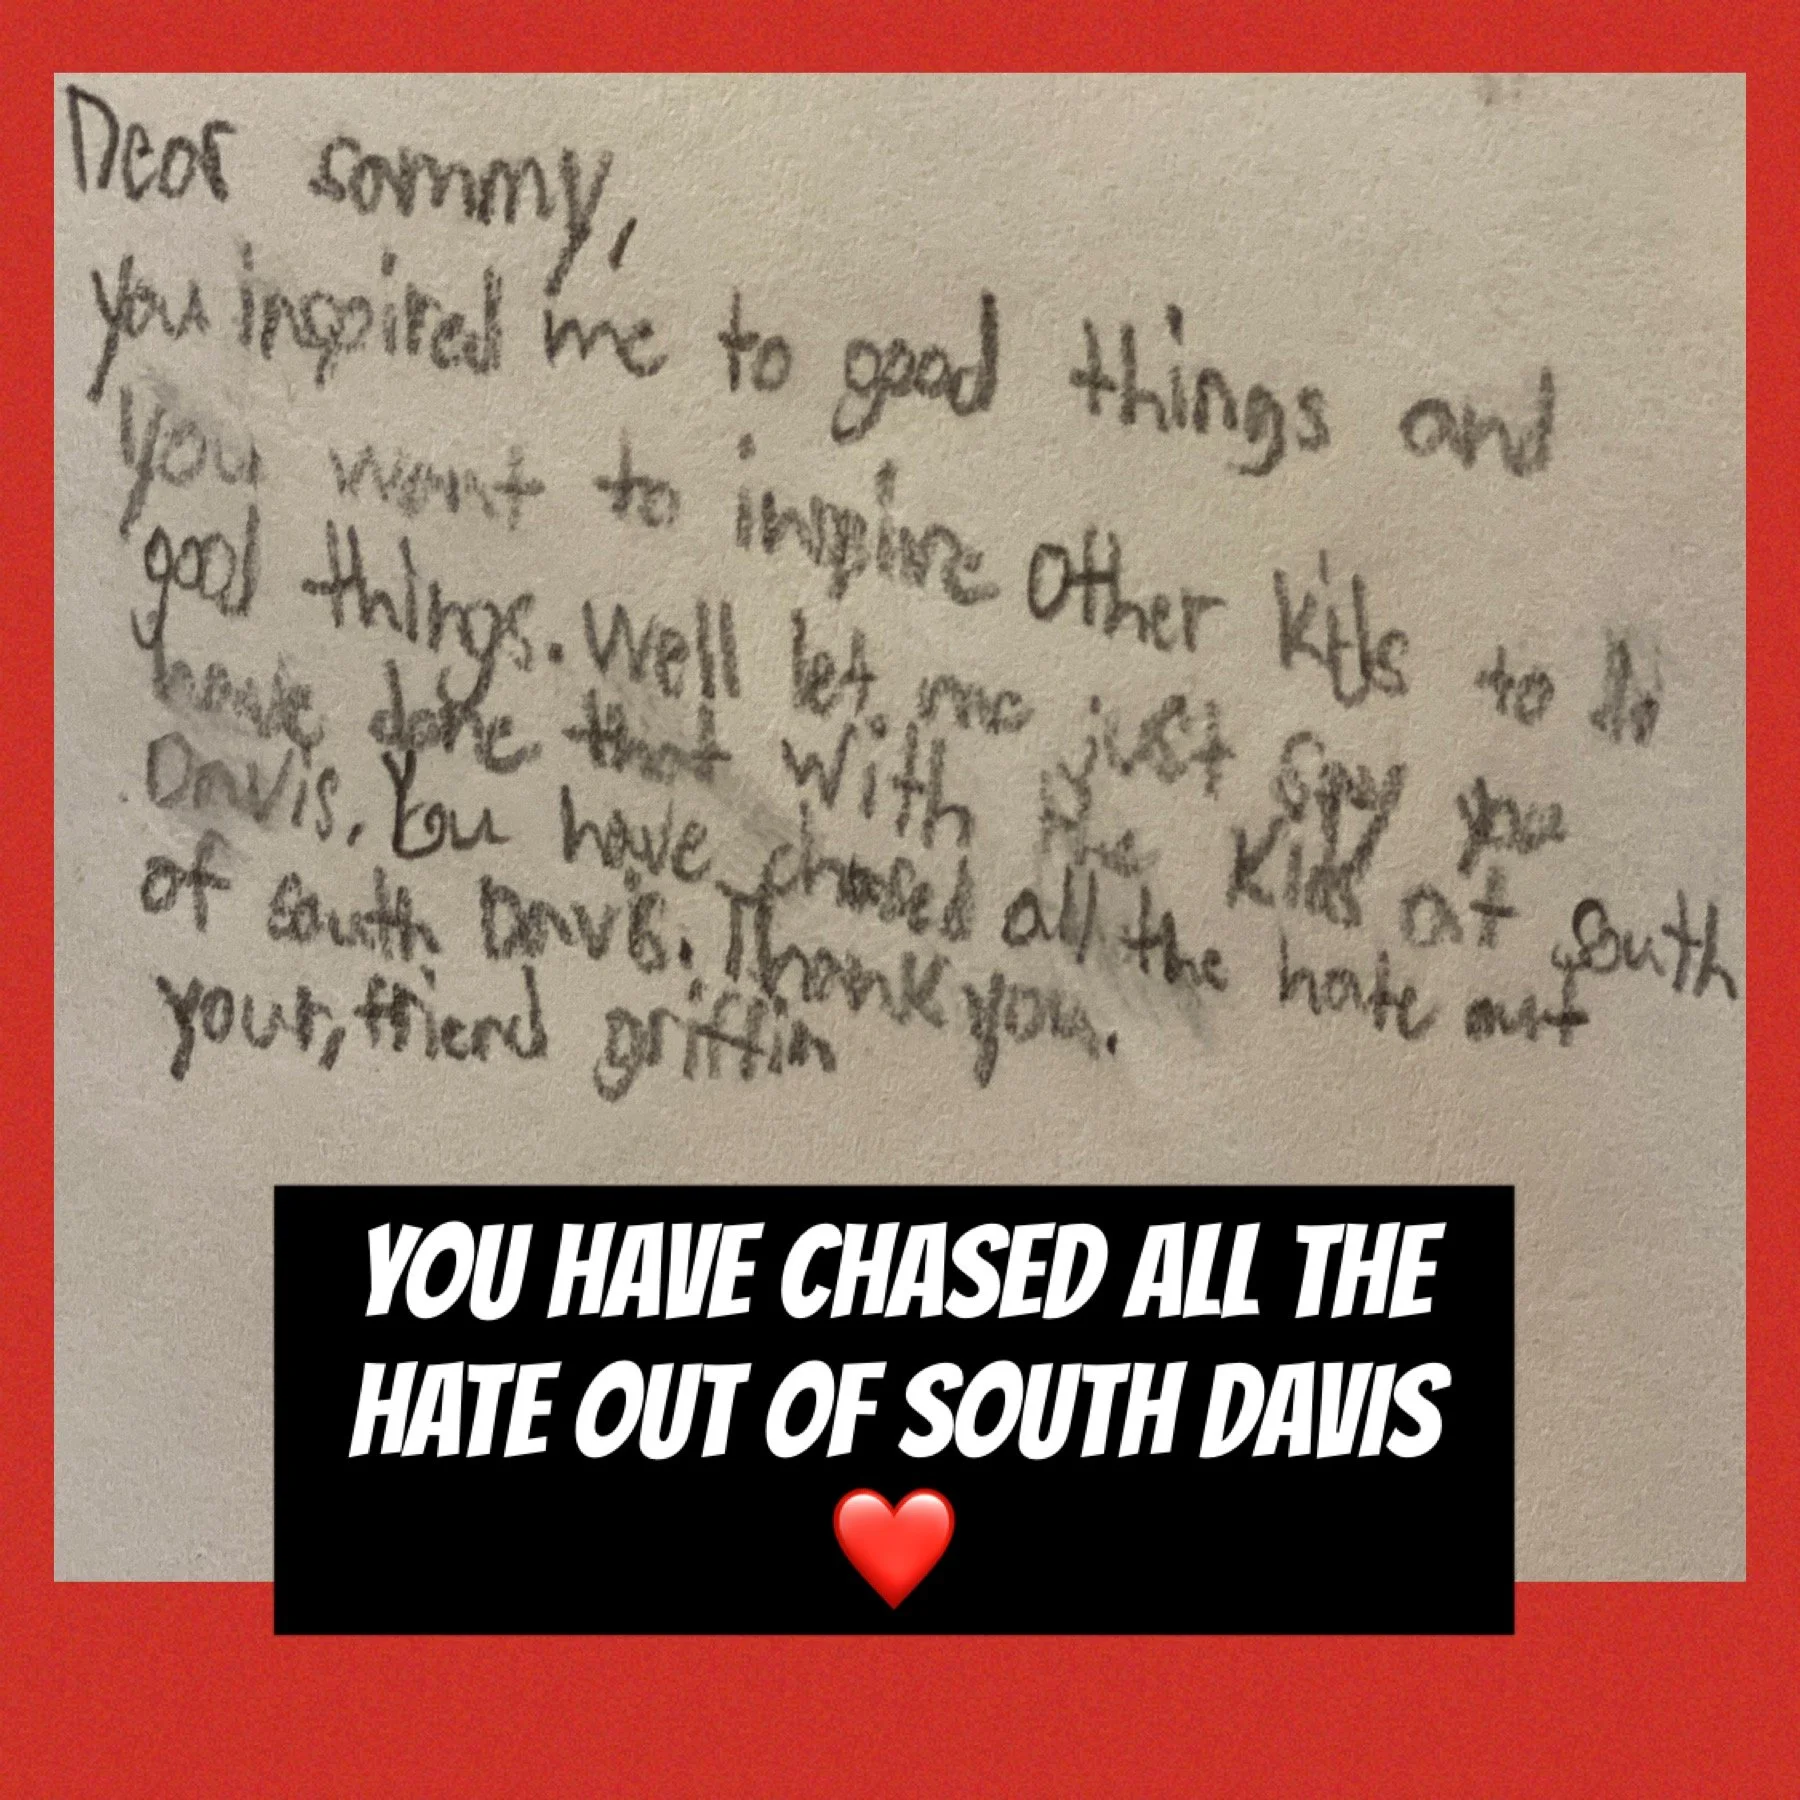 Dear sammy,
you inspired me to good things and
you want to inspire Other kids to do
good things. Well let me just say you
have done that with the kids at South
Davis. You have chased all the hate out
of south Davis. Thank you.
your, friend griffin
YOU HAVE CHASED ALL THE
HATE OUT OF SOUTH DAVIS
❤️